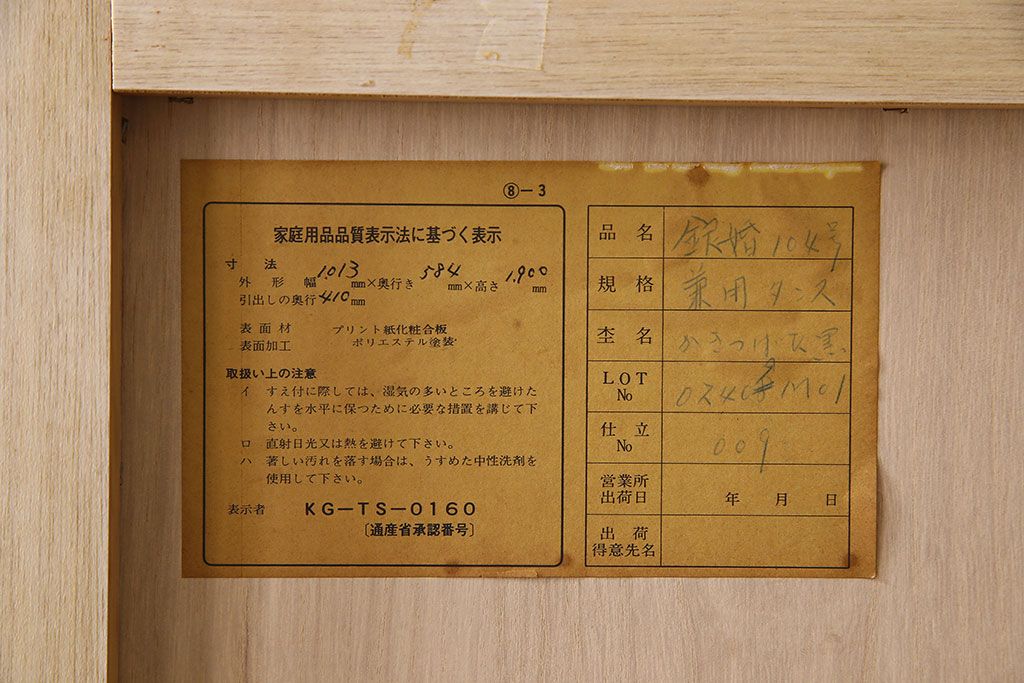 ⑧－3
家庭用品品質表示法に基づく表示
寸法
外形幅1.013mm×奥行き584mm×高さ1.900mm
引出しの奥行410mm
表面材 プリント紙化粧合板
表面加工 ポリエステル塗装
取扱い上の注意
イ すえ付に際しては、湿気の多いところを避けた
んすを水平に保つために必要な措置を講じて下
さい。
ロ 直射日光又は熱を避けて下さい。
ハ 著しい汚れを落す場合は、うすめた中性洗剤を
使用して下さい。
表示者 KG－TS－0160
〔通産省承認番号〕
品名 銀婚104号
規格 兼用タンス
杢名
LOT No
仕立 No 009
営業所
出荷日 年 月 日
出荷
得意先名